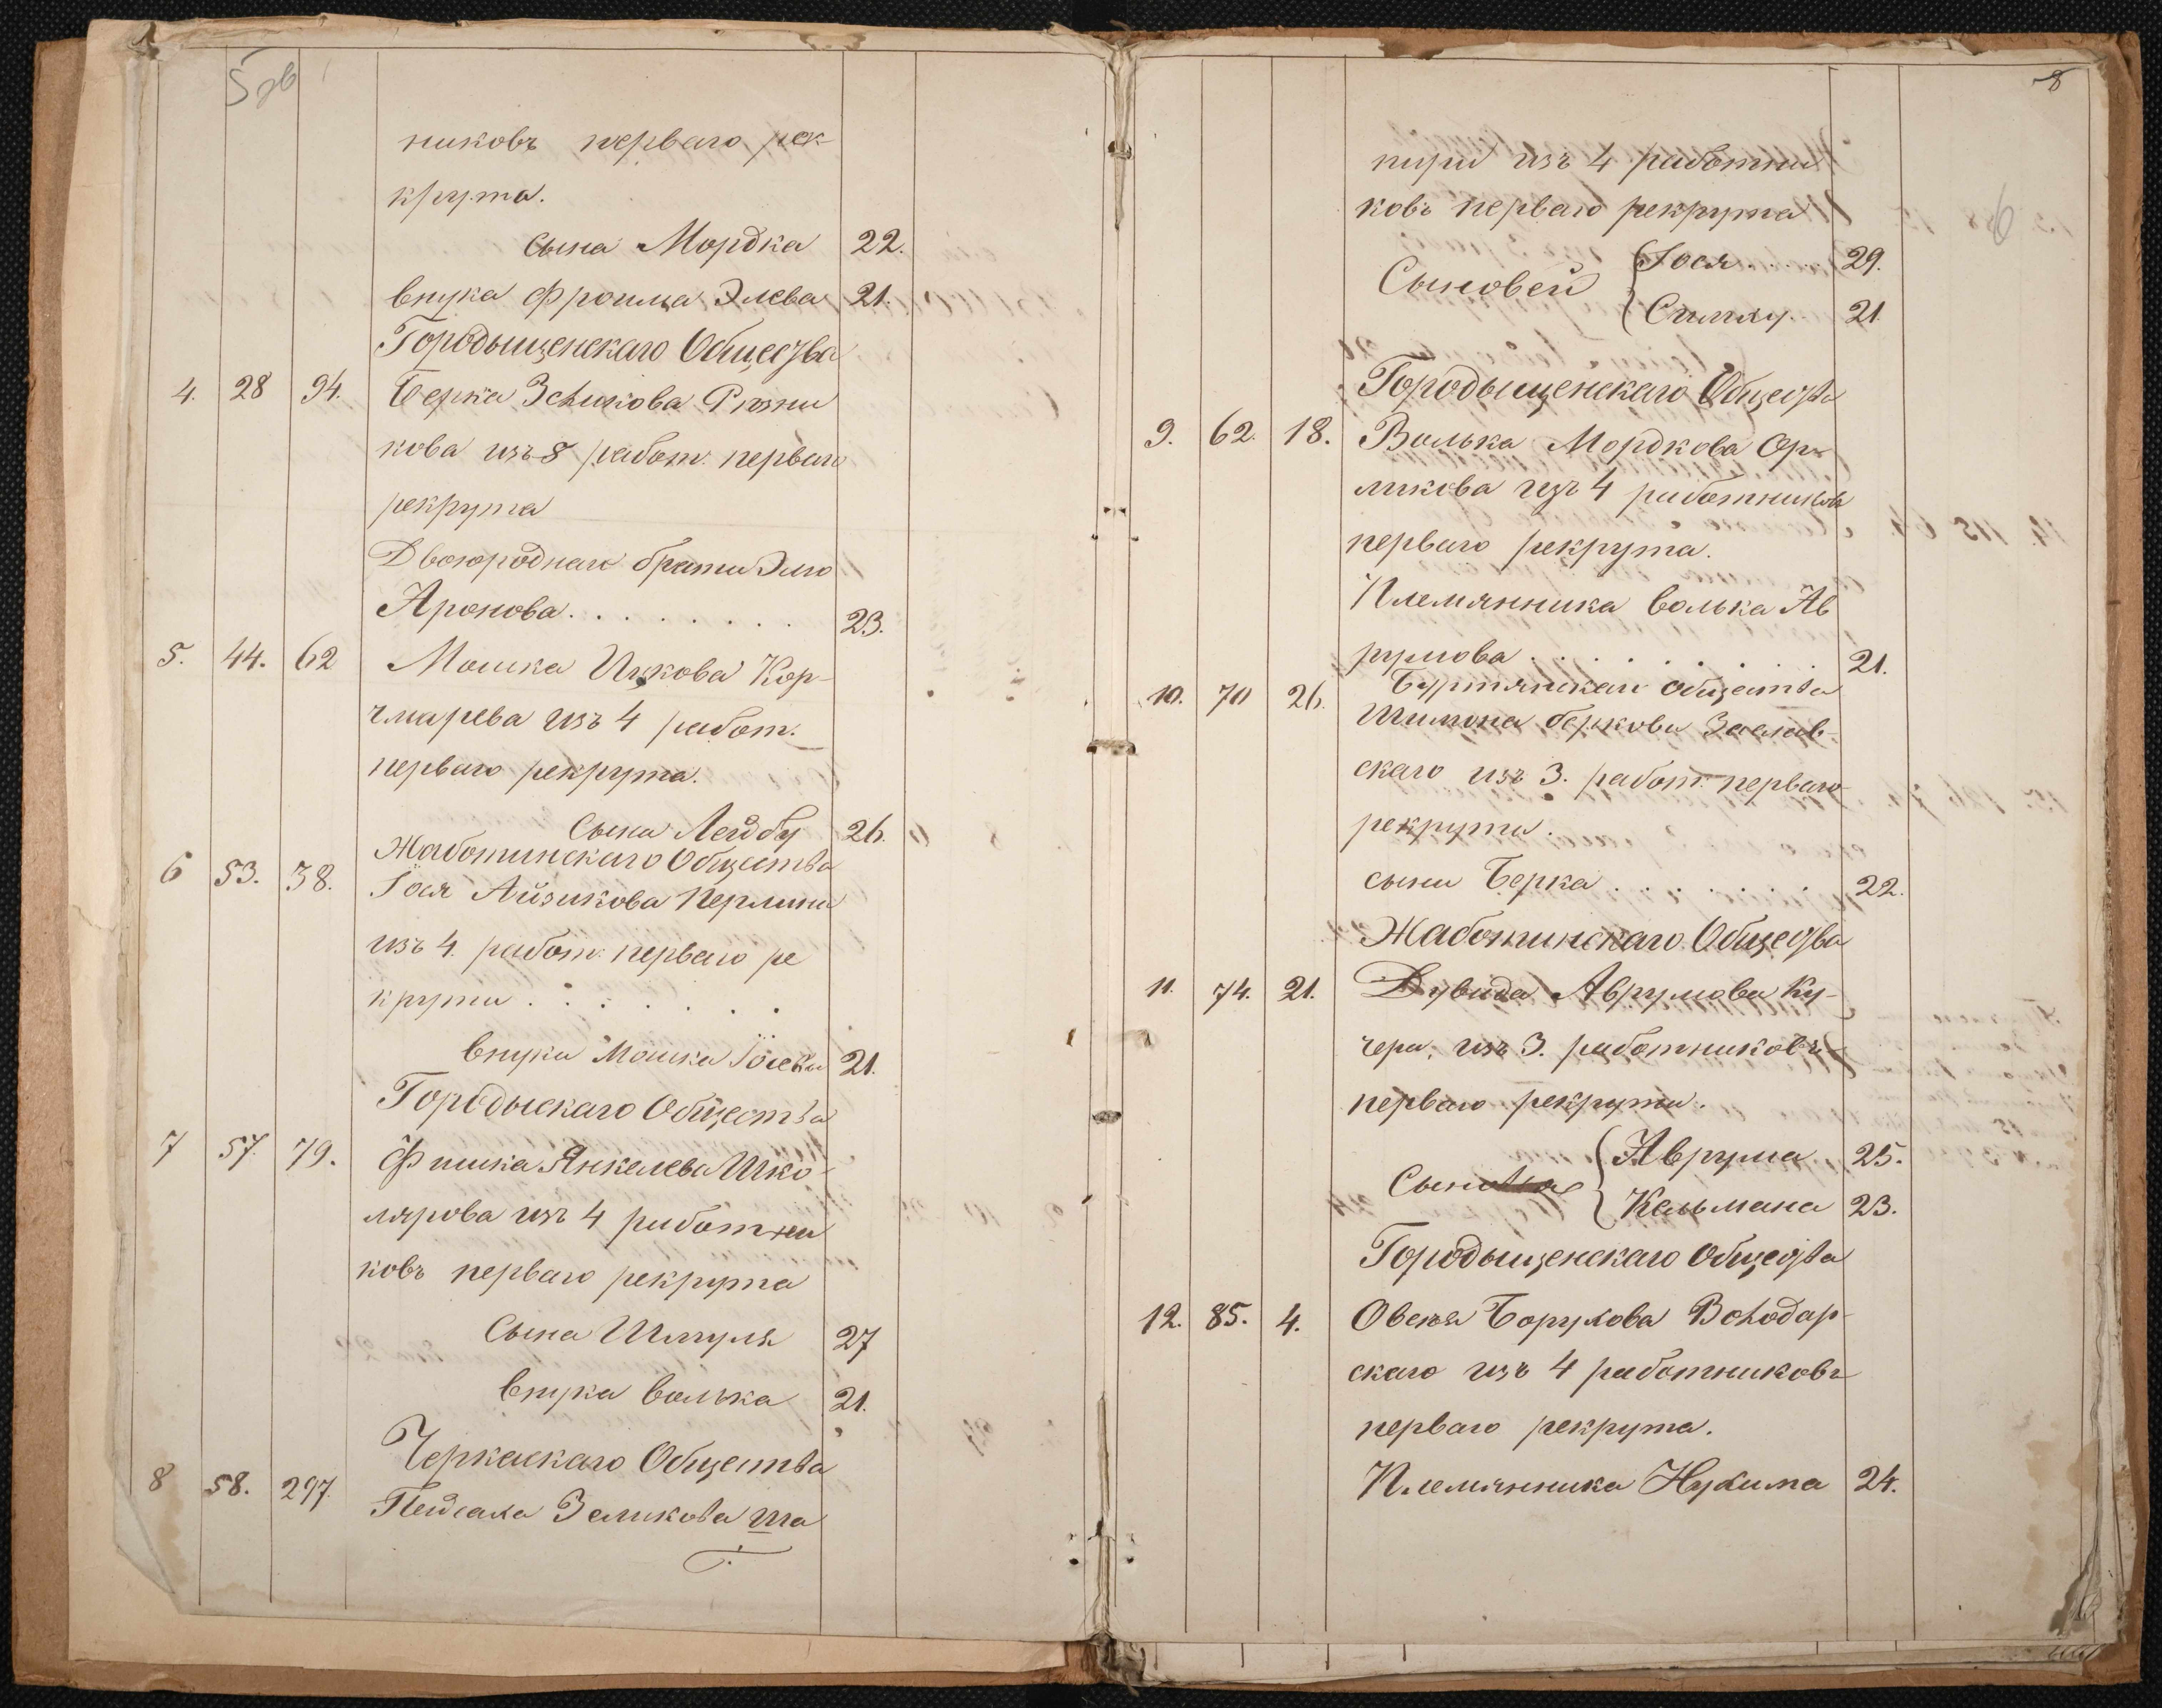 5 зв
никовъ перваго рек-
крута.
сына Мордка 22.
внука Фроима Элева 21.
Городыщенскаго Общества
4. 28 94. Берка Зельикова Рѣзни
кова изъ 8 работ. перваго
рекрута
Двоюроднаго брата Элю
Аронова. . . . . . . . 23.
5. 44. 62 Мошка Ицкова Кор-
чмарева изъ 4 работ.
перваго рекрута.
Сына Лейбу 26.
Жаботинскаго Общества
6 53. 38. Іося Айзикова Перлина
изъ 4. работ. перваго ре
крута . . . . . . .
внука Мошка Іосева 21.
Городыскаго Общества
7 57. 79. Фишка Янкелева Шко-
лярова изъ 4 работни
ковъ перваго рекрута
Сына Шмуля 27
внука Волька 21.
Черкаскаго Общества
8 58. 297. Пейсаха Зеликова Ша
8
6
пира изъ 4 работни
ковъ перваго рекрута
Сыновей { Іося . . . . 29.
Симху. 21
Городыщенскаго Общества
9. 62. 18. Волька Мордкова Ор-
ликова изъ 4 работниковъ
перваго рекрута.
Племянника Волька Ав
румова . . . . . . . . 21.
Буртянскаго общества
10. 70 26. Шимона Беркова Заслав-
скаго изъ 3. работ. перваго
рекрута.
сына Берка . . . . . . . 22.
Жаботинскаго Общества
11. 74. 21. Дувида Аврумова Ку-
чера, изъ 3. работниковъ
перваго рекрута.
{ Аврума 25.
Кельмана 23.
Городыщенскаго Общества
12. 85. 4. Овсея Борухова Володар-
скаго изъ 4 работниковъ
перваго рекрута.
Племянника Нухима 24.